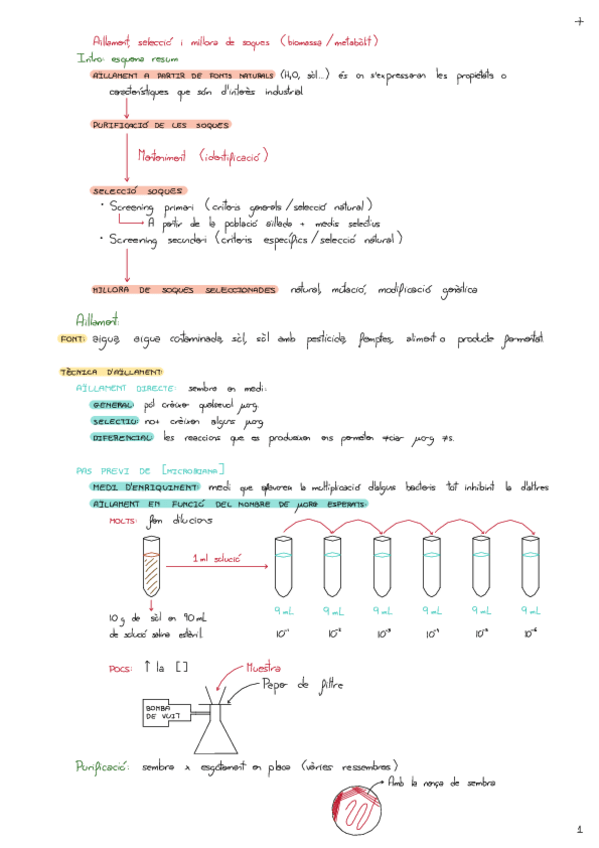 +
Aïllament, selecció i millora de soques (biomassa / metabòlit)
Intro: esquema resum
AÏLLAMENT A PARTIR DE FONTS NATURALS (H₂O, sòl...) és on s'expressaran les propietats o
característiques que són d'interès industrial
PURIFICACIÓ DE LES SOQUES
Manteniment (identificació)
SELECCIÓ SOQUES
· Screening primari (criteris generals / selecció natural)
A partir de la població aïllada + medis selectius
· Screening secundari (criteris específics / selecció natural)
MILLORA DE SOQUES SELECCIONADES natural, mutació, modificació genètica
Aïllament:
FONT: aigua, aigua contaminada, sòl, sòl amb pesticida, femptes, aliment o producte fermentat.
TÈCNICA D'AÏLLAMENT:
AÏLLAMENT DIRECTE: sembra en medi:
GENERAL: pot créixer qualsevol µorg.
SELECTIU: només creixen alguns µorg
DIFERENCIAL: les reaccions que es produeixen ens permeten ≠ciar µorg ≠s.
PAS PREVI DE [MICROBIANA]
MEDI D'ENRIQUIMENT: medi que afavoreix la multiplicació d'alguns bacteris tot inhibint la d'altres
AÏLLAMENT EN FUNCIÓ DEL NOMBRE DE µORG ESPERATS
MOLTS: fem dilucions
1 ml solució
9 mL 9 mL 9 mL 9 mL 9 mL 9 mL
10 g de sòl en 90 mL
de solució salina estèril.
10⁻¹ 10⁻² 10⁻³ 10⁻⁴ 10⁻⁵ 10⁻⁶
POCS: ↑ la []
Muestra
Paper de filtre
BOMBA
DE VUIT
Purificació: sembra x esgotament en placa (vàries ressembres)
Amb la nança de sembra
1